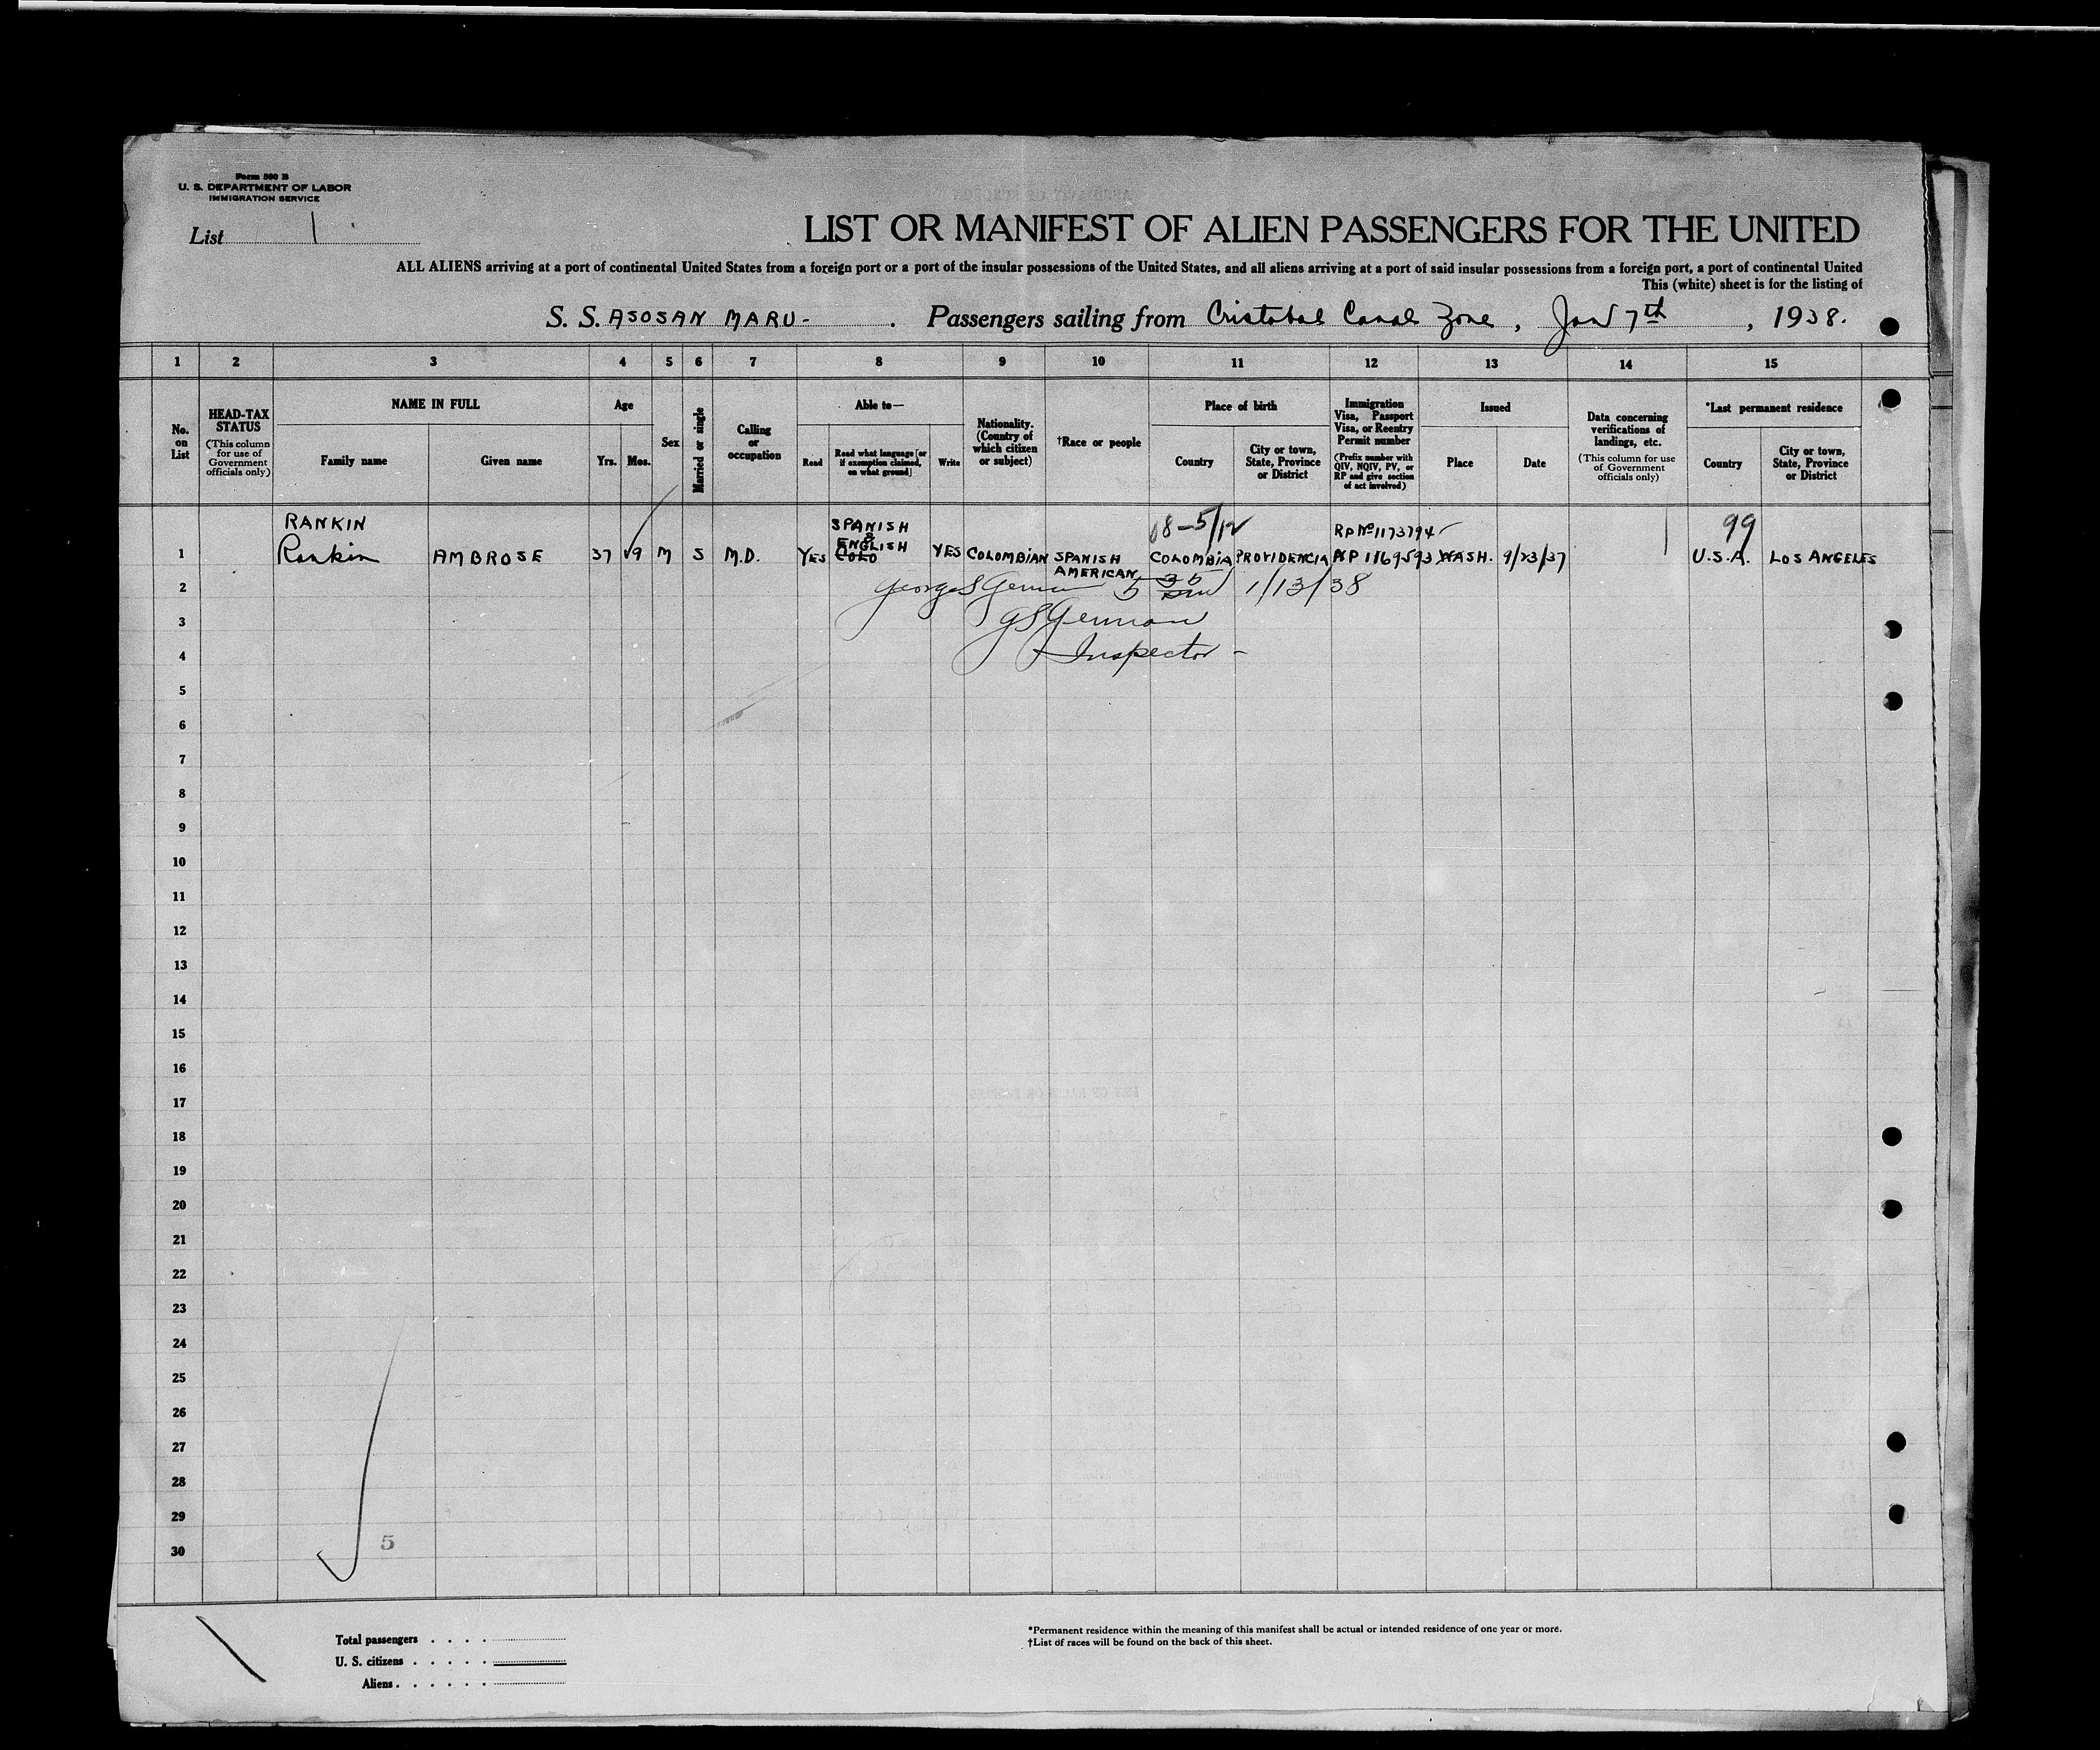 Form 500 B
U. S. DEPARTMENT OF LABOR
IMMIGRATION SERVICE
List 1
LIST OR MANIFEST OF ALIEN PASSENGERS FOR THE UNITED
ALL ALIENS arriving at a port of continental United States from a foreign port or a port of the insular possessions of the United States, and all aliens arriving at a port of said insular possessions from a foreign port, a port of continental United
This (white) sheet is for the listing of
S. S. ASOSAN MARU- . Passengers sailing from Cristobal Canal Zone , Jan 7th , 1938.
1 2 3 4 5 6 7 8 9 10 11 12 13 14 15
No. on List
HEAD-TAX STATUS
(This column for use of Government officials only)
NAME IN FULL
Family name
Given name
Age
Yrs.
Mos.
Sex
Married or single
Calling or occupation
Able to—
Read
Read what language [or if exemption claimed, on what ground]
Write
Nationality. (Country of which citizen or subject)
†Race or people
Place of birth
Country
City or town, State, Province or District
Immigration Visa, Passport Visa, or Reentry Permit number
(Prefix number with QIV, NQIV, PV, or RP and give section of act involved)
Issued
Place
Date
Data concerning verifications of landings, etc.
(This column for use of Government officials only)
*Last permanent residence
Country
City or town, State, Province or District
RANKIN SPANISH & ENGLISH 08-5/12 RP Nº 1173794 99
1 Rankin AMBROSE 37 9 M S M.D. YES COLO YES COLOMBIAN SPANISH AMERICAN COLOMBIA PROVIDENCIA RP 1169593 WASH. 9/23/37 U.S.A. LOS ANGELES
2 George S German 5 35 1/13/38
3 GS German
4 Inspector -
5
6
7
8
9
10
11
12
13
14
15
16
17
18
19
20
21
22
23
24
25
26
27
28
29
30
5
Total passengers
U. S. citizens
Aliens
*Permanent residence within the meaning of this manifest shall be actual or intended residence of one year or more.
†List of races will be found on the back of this sheet.